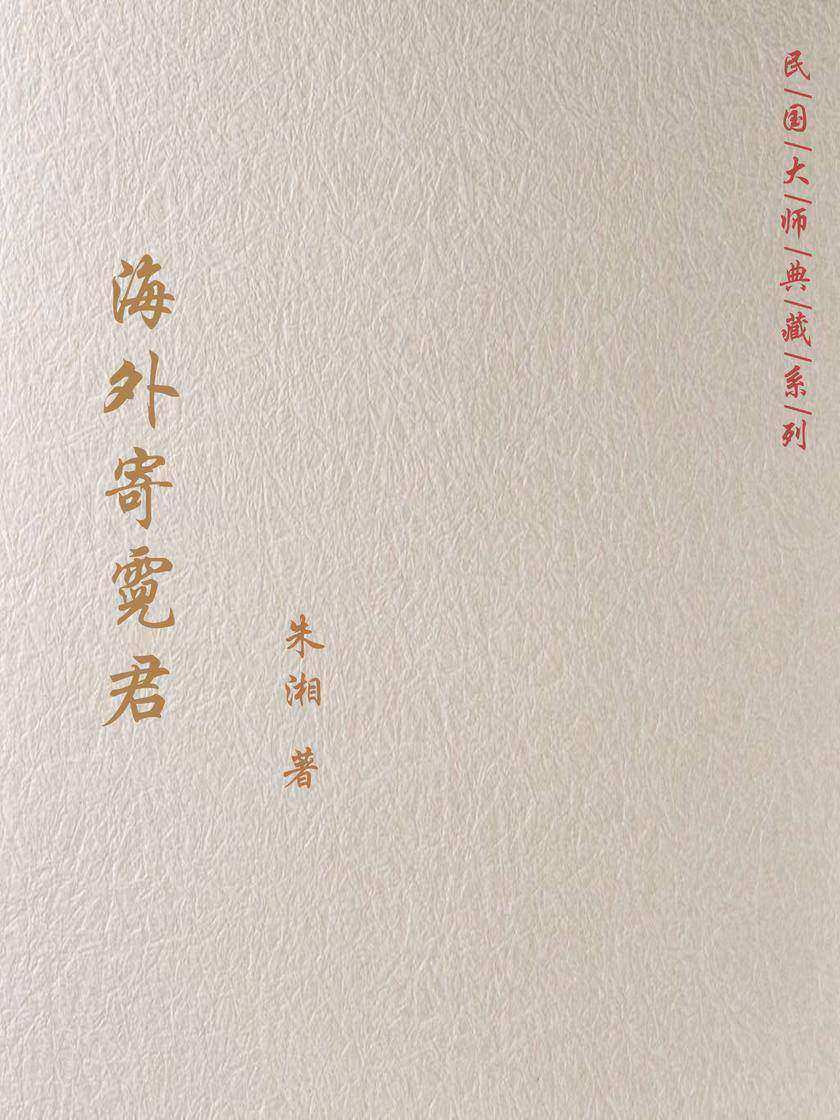 民|国|大|师|典|藏|系|列
海外寄霓君
朱湘 著